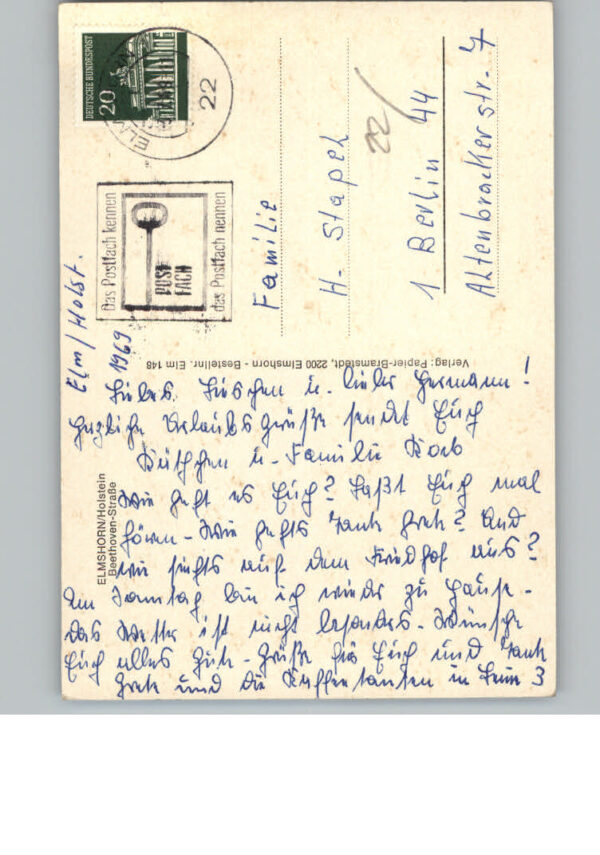 DEUTSCHE BUNDESPOST
20
22
das Postfach kennen
POST
FACH
das Postfach nennen
Familie
H. Stapel
22/
1 Berlin 44
Altenbraker str. 7
Verlag: Papier-Bramstedt, 2200 Elmshorn - Bestellnr. Elm 148
ELMSHORN/Holstein
Beethoven-Straße
Elm/Holst.
1969
Liebes Lieschen u. lieber Hermann!
Herzliche Urlaubsgrüße sendet Euch
u. Familie
Wie geht es Euch? Laßt Euch mal
hören - Wie gehts Tante Grete? Und
wie siehts auf dem Friedhof aus?
Am Samstag bin ich wieder zu Hause -
das Wetter ist nicht besonders - Wünsche
Euch alles Gute - Grüße für Euch und Tante
Grete und die Kaffeetanten in